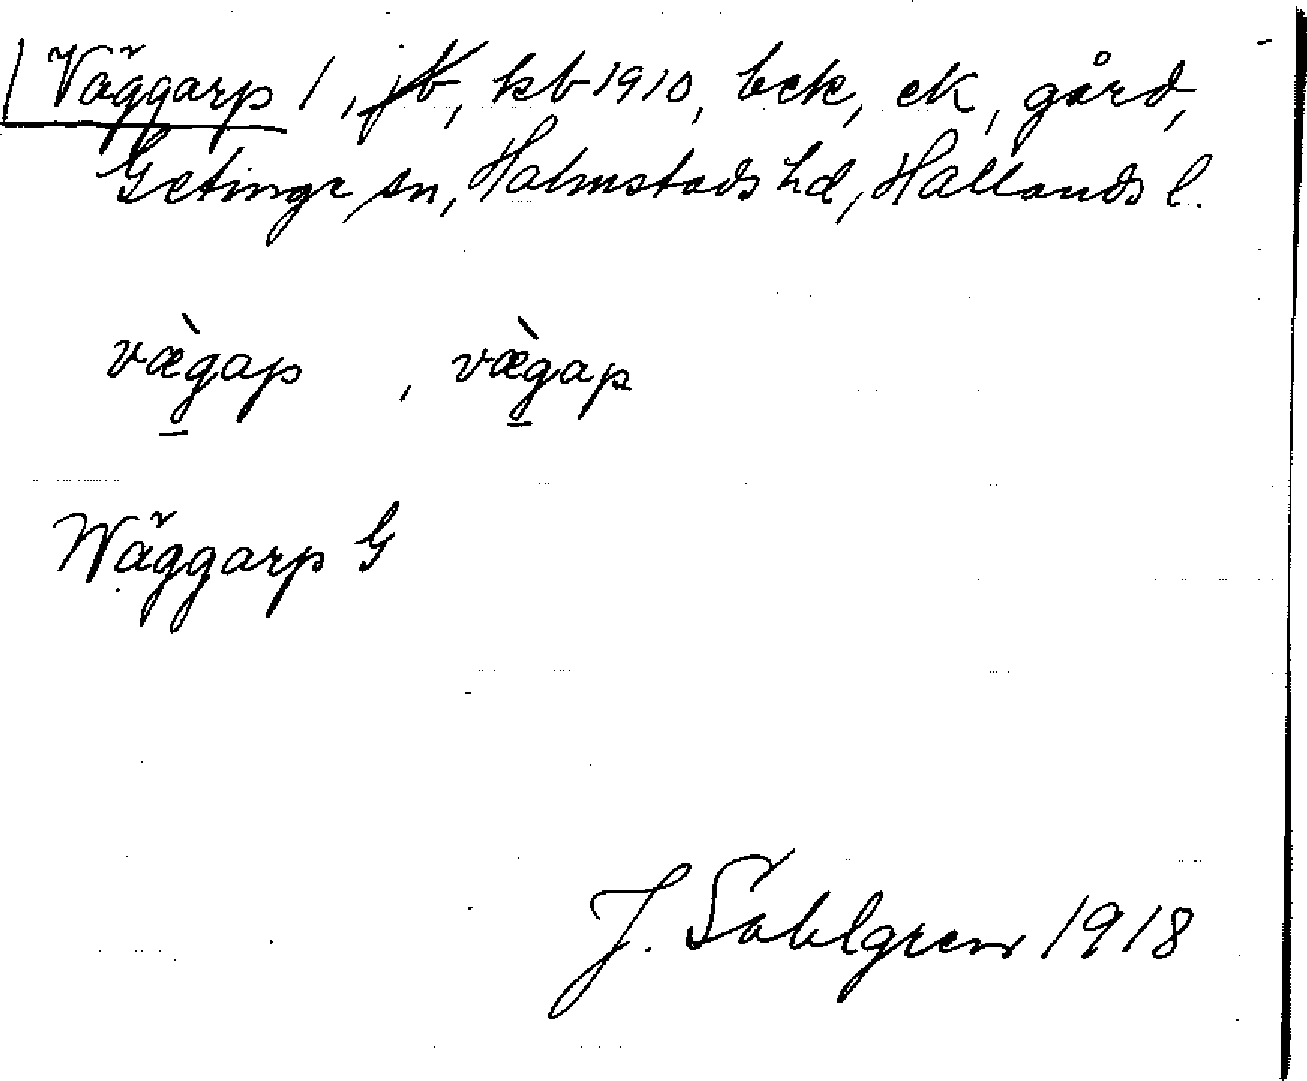 Väggarp 1, jb, kb 1910, bck, ek, gård,
Getinge sn, Halmstads hd, Hallands l.
væ̀gap , væ̀gap
Wäggarp G
J. Sahlgren 1918